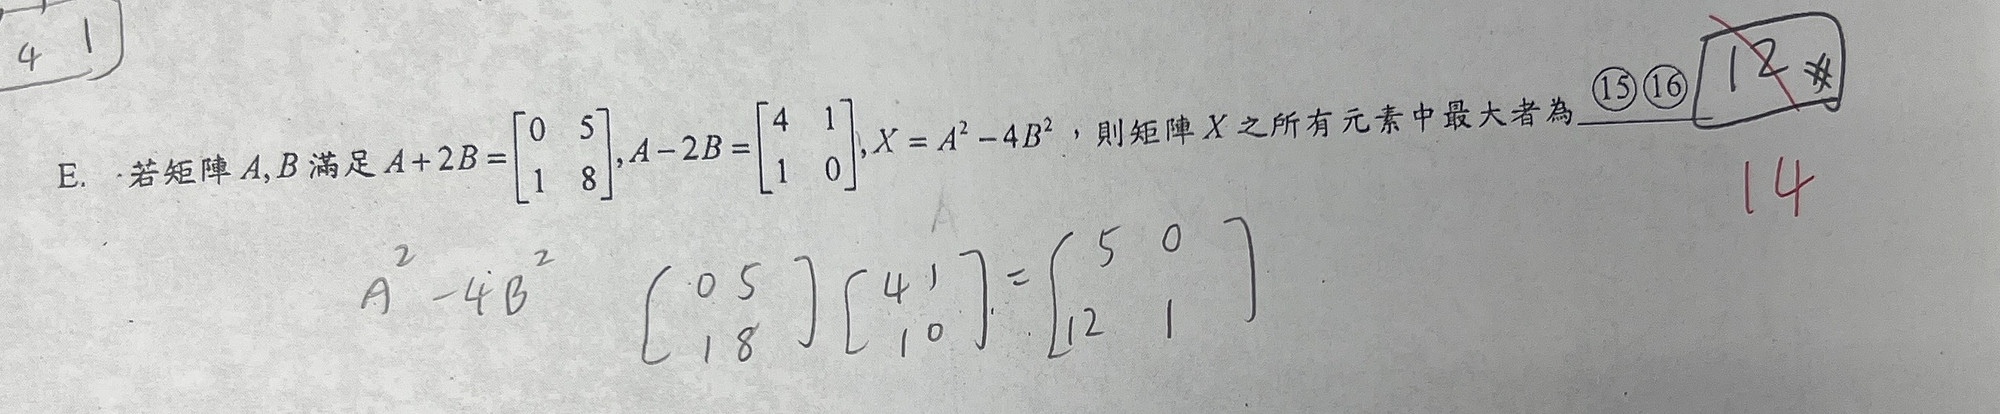 4 1
E. 若矩陣 A, B 滿足 A + 2B = [0 5; 1 8], A − 2B = [4 1; 1 0], X = A² − 4B²，則矩陣 X 之所有元素中最大者為 ⑮⑯ 12 *
14
A
A² − 4B² [0 5; 1 8] [4 1; 1 0] = [5 0; 12 1]